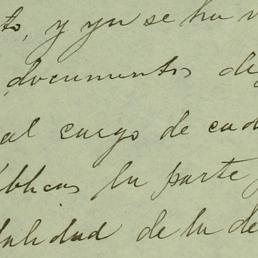 to, y ya se ha
documentos de
al cargo de cad
blicas la parte
alidad de la de